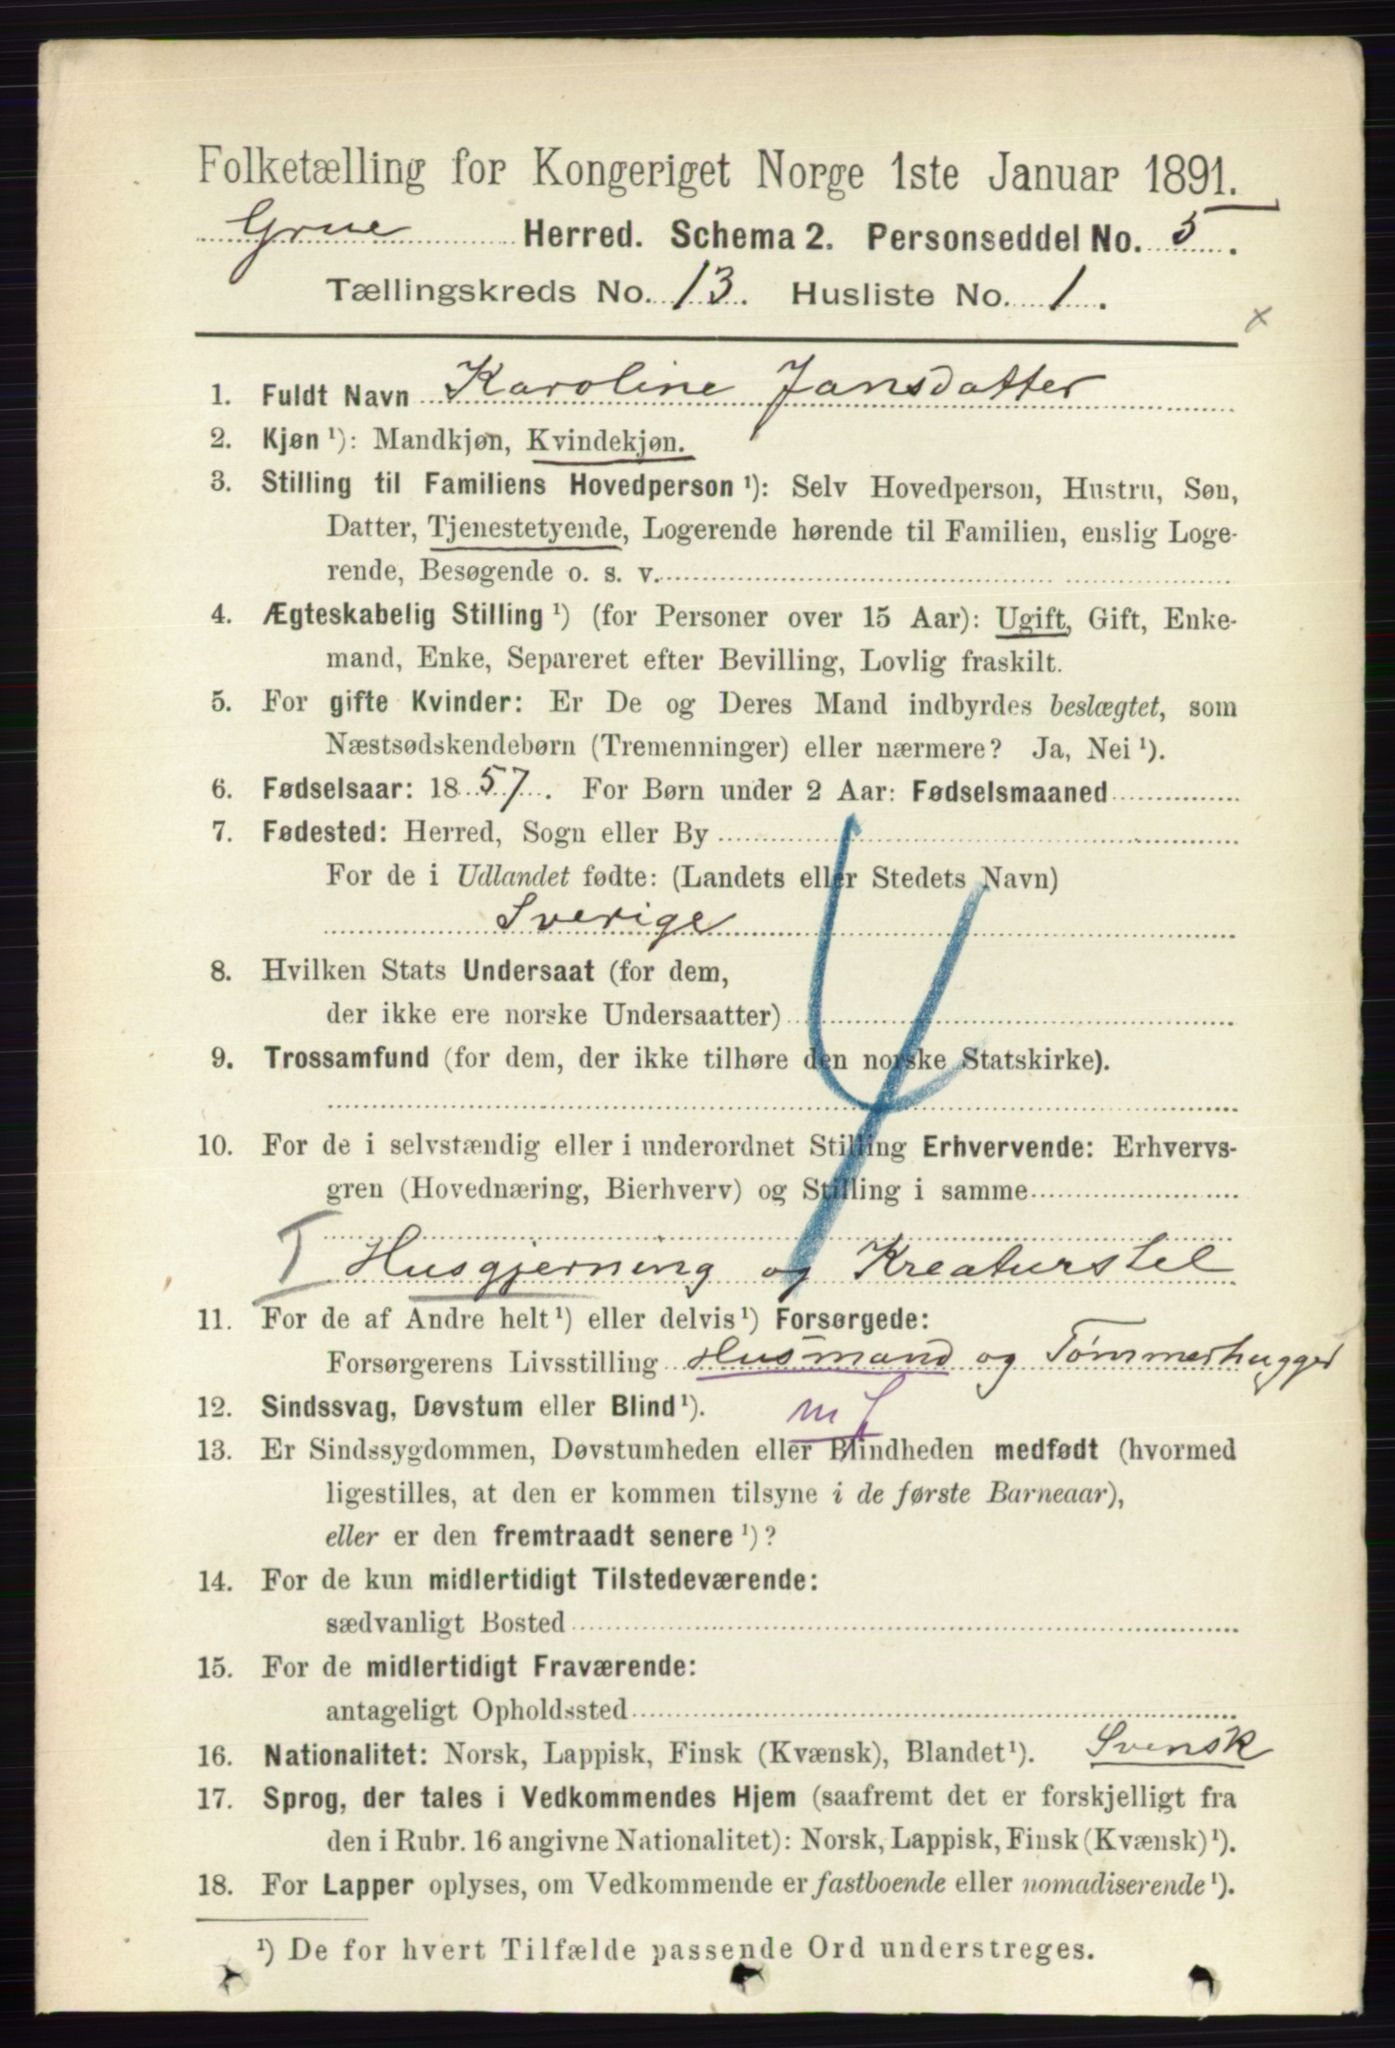 Folketælling for Kongeriget Norge 1ste Januar 1891.
Grue Herred. Schema 2. Personseddel No. 5.
Tællingskreds No. 13. Husliste No. 1.
x
1. Fuldt Navn Karoline Jansdatter
2. Kjøn ¹): Mandkjøn, Kvindekjøn.
3. Stilling til Familiens Hovedperson ¹): Selv Hovedperson, Hustru, Søn,
Datter, Tjenestetyende, Logerende hørende til Familien, enslig Loge-
rende, Besøgende o. s. v.
4. Ægteskabelig Stilling ¹) (for Personer over 15 Aar): Ugift, Gift, Enke-
mand, Enke, Separeret efter Bevilling, Lovlig fraskilt.
5. For gifte Kvinder: Er De og Deres Mand indbyrdes beslægtet, som
Næstsødskendebørn (Tremenninger) eller nærmere? Ja, Nei ¹).
6. Fødselsaar: 1857. For Børn under 2 Aar: Fødselsmaaned
7. Fødested: Herred, Sogn eller By
For de i Udlandet fødte: (Landets eller Stedets Navn)
Sverige
8. Hvilken Stats Undersaat (for dem,
der ikke ere norske Undersaatter)
9. Trossamfund (for dem, der ikke tilhøre den norske Statskirke).
10. For de i selvstændig eller i underordnet Stilling Erhvervende: Erhvervs-
gren (Hovednæring, Bierhverv) og Stilling i samme
I Husgjerning og Kreaturstel
11. For de af Andre helt ¹) eller delvis ¹) Forsørgede:
Forsørgerens Livsstilling Husmand og Tømmerhugger
12. Sindssvag, Døvstum eller Blind ¹).
13. Er Sindssygdommen, Døvstumheden eller Blindheden medfødt (hvormed
ligestilles, at den er kommen tilsyne i de første Barneaar),
eller er den fremtraadt senere ¹)?
14. For de kun midlertidigt Tilstedeværende:
sædvanligt Bosted
15. For de midlertidigt Fraværende:
antageligt Opholdssted
16. Nationalitet: Norsk, Lappisk, Finsk (Kvænsk), Blandet ¹). Svensk
17. Sprog, der tales i Vedkommendes Hjem (saafremt det er forskjelligt fra
den i Rubr. 16 angivne Nationalitet): Norsk, Lappisk, Finsk (Kvænsk) ¹).
18. For Lapper oplyses, om Vedkommende er fastboende eller nomadiserende ¹).
¹) De for hvert Tilfælde passende Ord understreges.